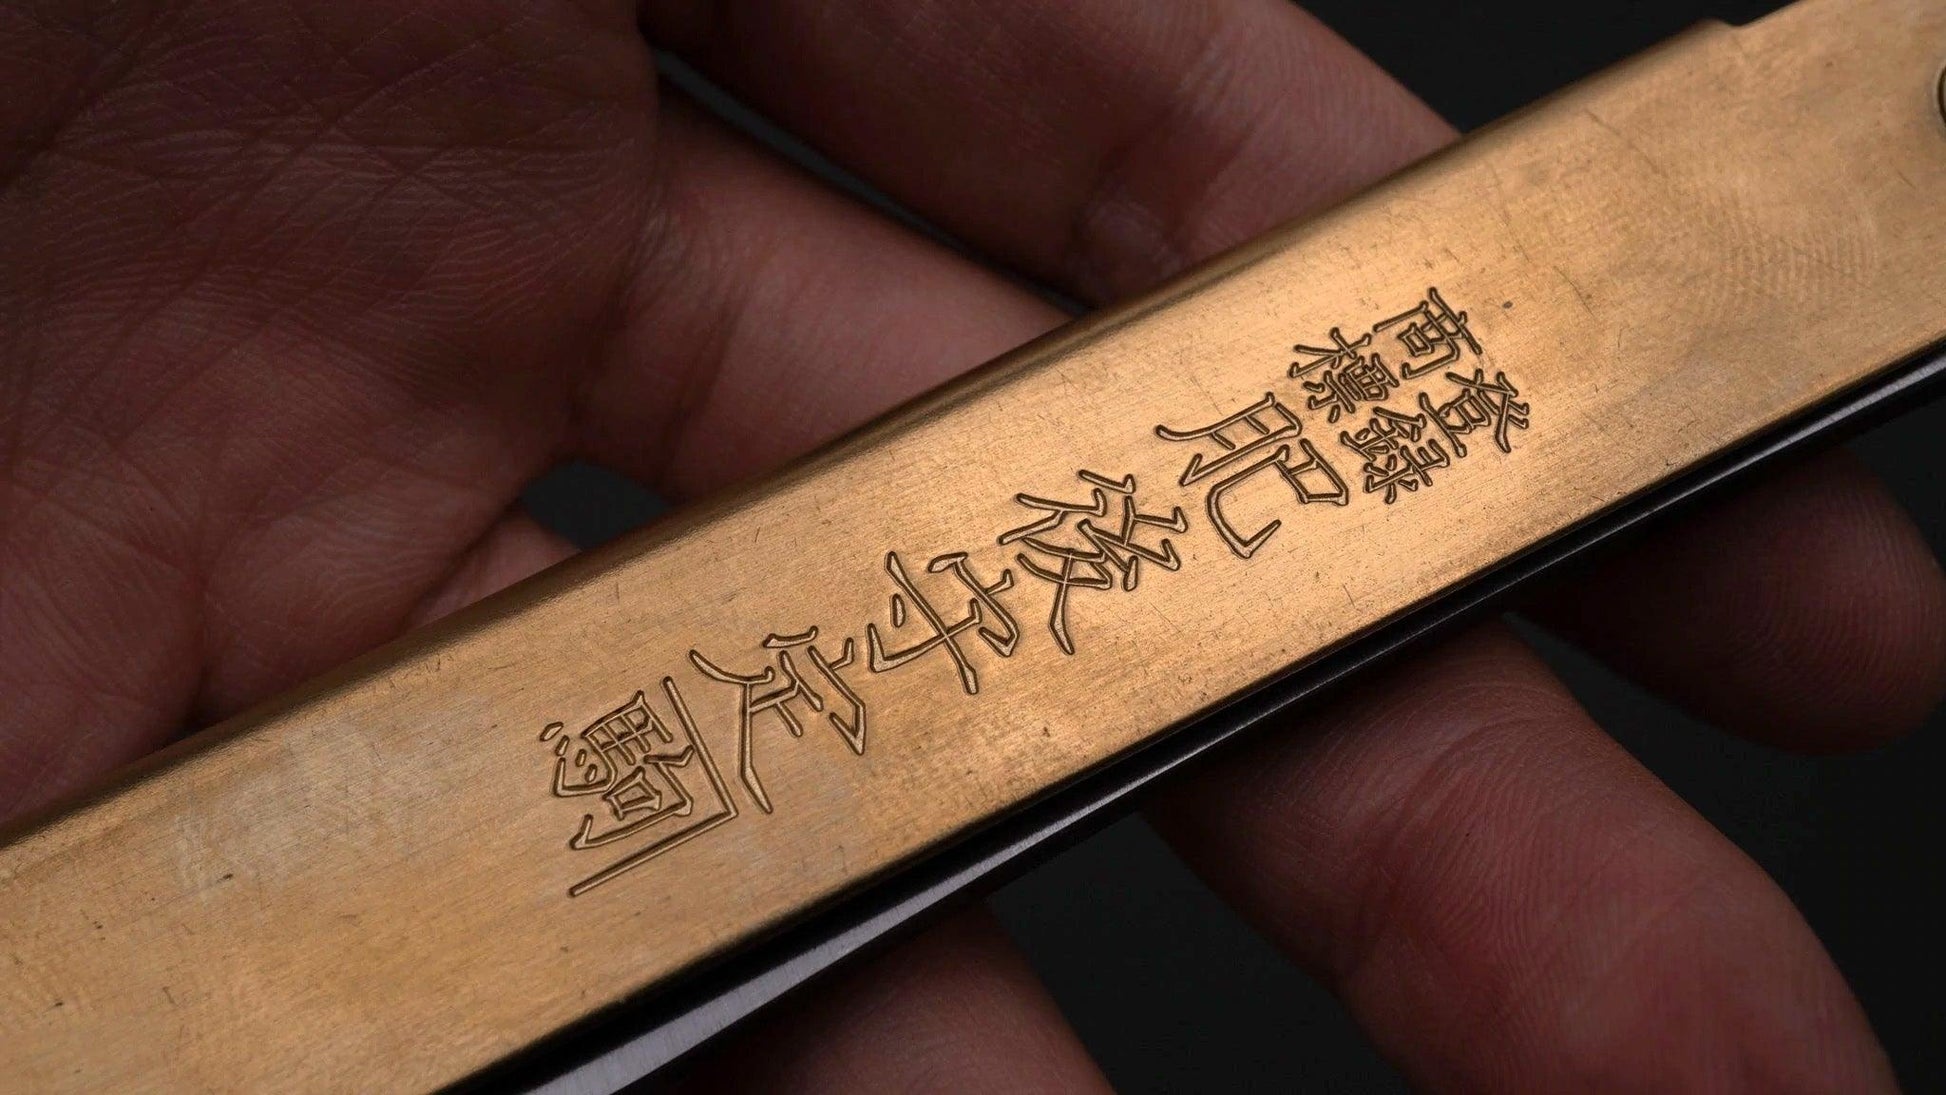 登録
商標
肥後守定駒